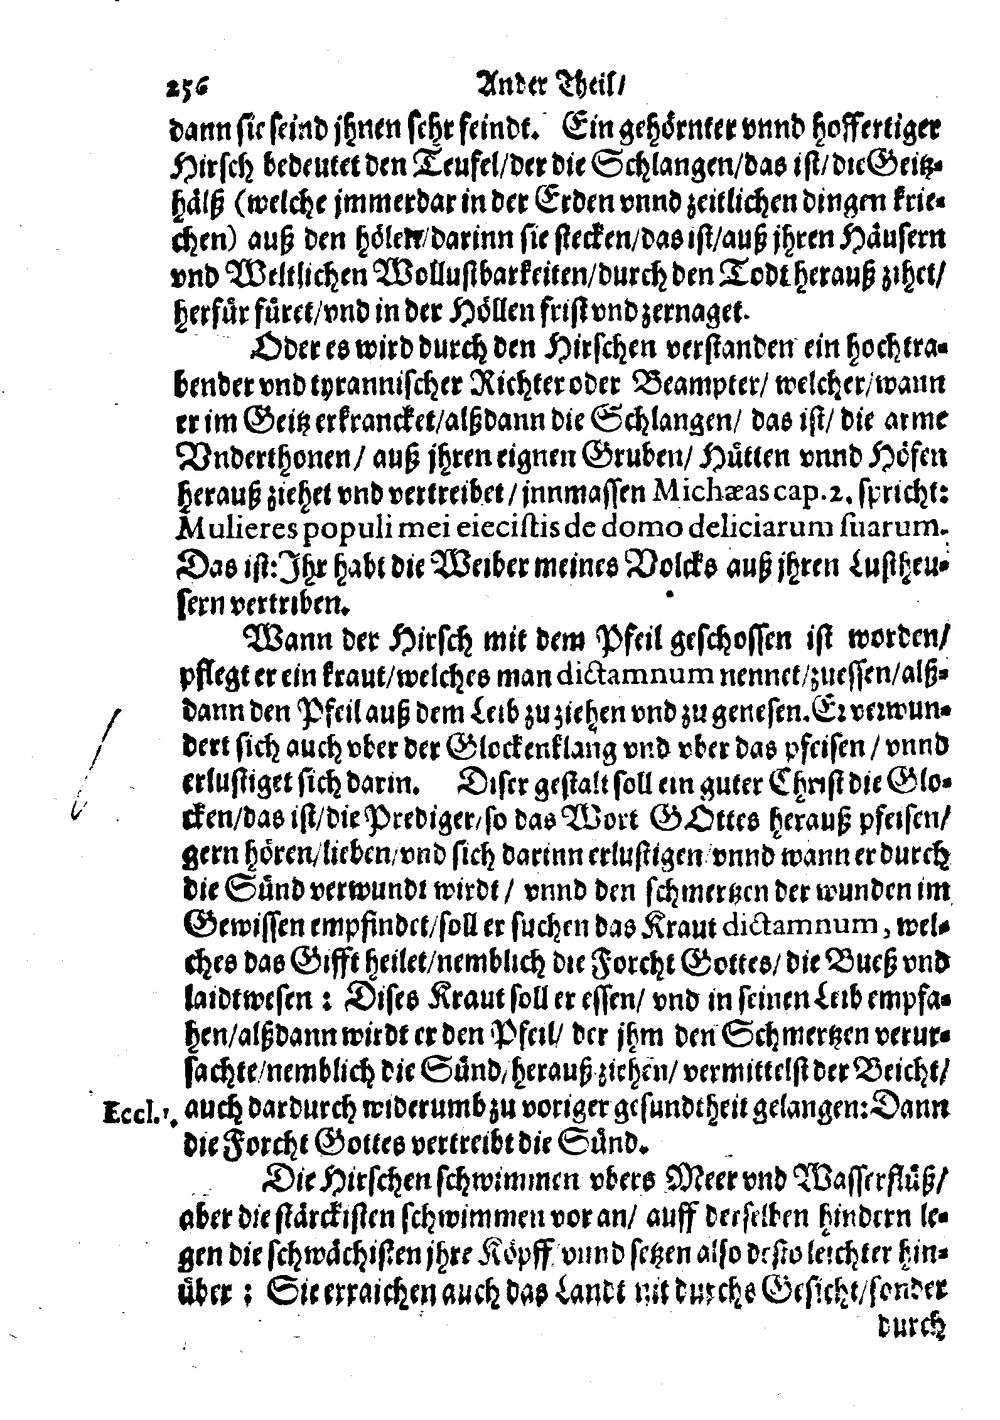 256 Ander Theil/
dann sie seind jhnen sehr feindt. Ein gehörnter vnnd hoffertiger
Hirsch bedeutet den Teufel/der die Schlangen/das ist/die Geitz-
hälß (welche jmmerdar in der Erden vnnd zeitlichen dingen krie-
chen) auß den hölen/darinn sie stecken/das ist/auß jhren Häusern
vnd Weltlichen Wollustbarkeiten/durch den Todt herauß zihet/
herfür füret/vnd in der Höllen frist vnd zernaget.
Oder es wird durch den Hirschen verstanden ein hochtra-
bender vnd tyrannischer Richter oder Beampter/ welcher/wann
er im Geitz erkrancket/alßdann die Schlangen/ das ist/ die arme
Vnderthonen/ auß jhren eignen Gruben/ Hütten vnnd Höfen
herauß ziehet vnd vertreibet/ jnnmassen Michæas cap. 2. spricht:
Mulieres populi mei eiecistis de domo deliciarum suarum.
Das ist: Jhr habt die Weiber meines Volcks auß jhren Lustheu-
sern vertriben.
Wann der Hirsch mit dem Pfeil geschossen ist worden/
pflegt er ein kraut/welches man dictamnum nennet/zuessen/alß-
dann den Pfeil auß dem Leib zu ziehen vnd zu genesen. Er verwun-
dert sich auch vber der Glockenklang vnd vber das pfeisen/ vnnd
erlustiget sich darin. Diser gestalt soll ein guter Christ die Glo-
cken/das ist/die Prediger/so das Wort GOttes herauß pfeisen/
gern hören/lieben/vnd sich darinn erlustigen vnnd wann er durch
die Sünd verwundt wirdt/ vnnd den schmertzen der wunden im
Gewissen empfindet/soll er suchen das Kraut dictamnum, wel-
ches das Gifft heilet/nemblich die Forcht Gottes/ die Bueß vnd
laidtwesen: Dises Kraut soll er essen/ vnd in seinen Leib empfa-
hen/alßdann wirdt er den Pfeil/ der jhm den Schmertzen verur-
sachte/nemblich die Sünd/herauß ziehen/ vermittelst der Beicht/
Eccl. 1. auch dardurch widerumb zu voriger gesundtheit gelangen: Dann
die Forcht Gottes vertreibt die Sünd.
Die Hirschen schwimmen vbers Meer vnd Wasserflüß/
aber die stärckisten schwimmen vor an/ auff derselben hindern le-
gen die schwächisten jhre Köpff vnnd setzen also desto leichter hin-
über: Sie erraichen auch das Landt nit durchs Gesicht/sonder
durch